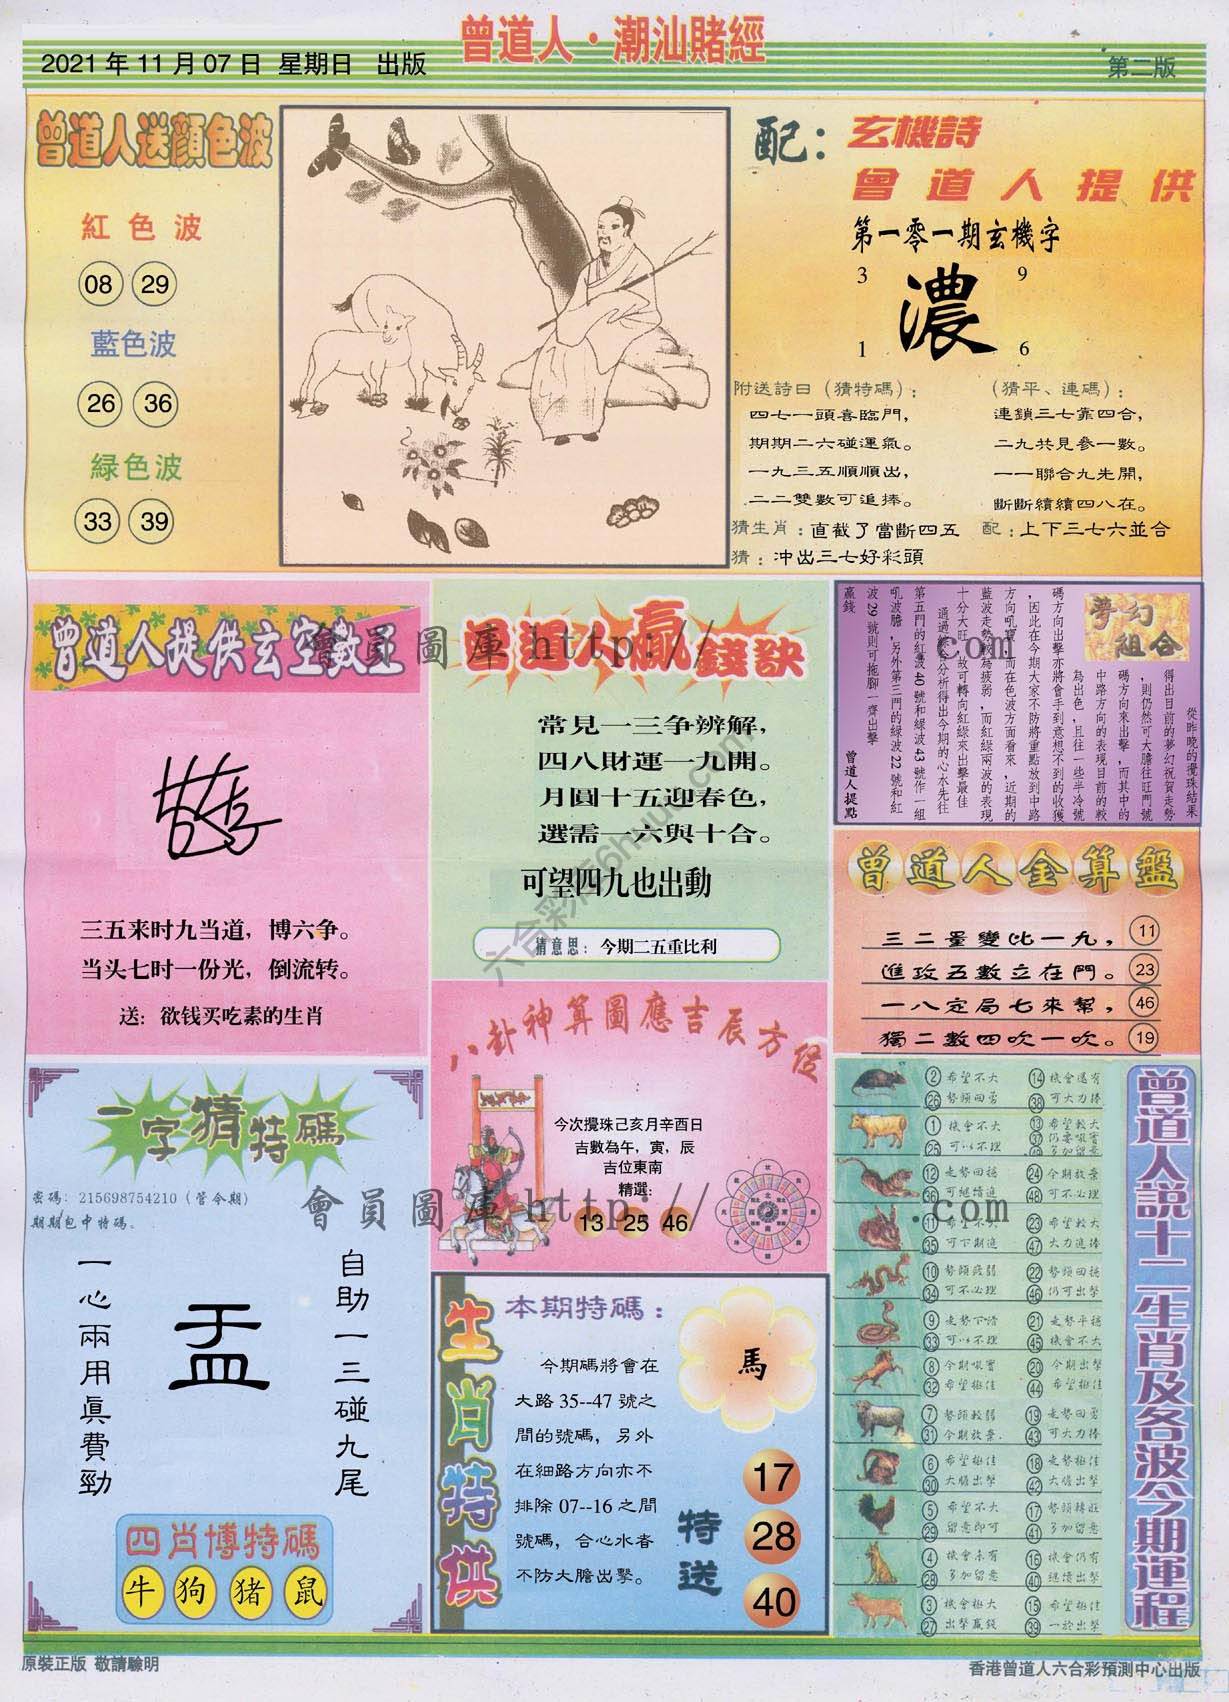 2021 年 11 月 07 日 星期日 出版
曾道人·潮汕賭經
第二版
曾道人送顏色波
紅色波
08 29
藍色波
26 36
綠色波
33 39
配：玄機詩
曾道人提供
第一零一期玄機字
3 9
濃
1 6
附送詩曰（猜特碼）：
四七一頭喜臨門，
期期二六碰運氣。
一九三五順順出，
二二雙數可追捧。
（猜平、連碼）：
連鎖三七靠四合，
二九共見參一數。
一一聯合九先開，
斷斷續續四八在。
猜生肖：直截了當斷四五 配：上下三七六並合
猜：沖出三七好彩頭
曾道人提供玄空數王
三五来时九当道，博六争。
当头七时一份光，倒流转。
送：欲钱买吃素的生肖
曾道人贏錢訣
常見一三争辨解，
四八財運一九開。
月圓十五迎春色，
選需一六與十合。
可望四九也出動
猜意思：今期二五重比利
會員圖庫 http://
.com
夢幻組合
從昨晚的攪珠結果
得出目前的夢幻祝賀走勢
，則仍然可大膽往旺門號
碼方向來出擊，而其中的
中路方向的表現目前的較
為出色，且往一些半冷號
碼方向出擊亦將會手到意想不到的收獲
，因此在今期大家不防將重點放到中路
方向吼寶，而在色波方面看來，近期的
藍波走勢較為疲弱，而紅綠兩波的表現
十分大旺，故可轉向紅綠來出擊最佳
通過綜合分析得出今期的心水先往
第五門的紅波 40 號和綠波 43 號作一組
吼波膽，另外第三門的綠波 22 號和紅
波 29 號則可拖腳一齊出擊
贏錢
曾道人提點
曾道人金算盤
三二星變比一九， 11
進攻五數立在門。 23
一八定局七來幫， 46
獨二數四吹一吹。 19
八卦神算圖應吉辰方位
今次攪珠己亥月辛酉日
吉數為午，寅，辰
吉位東南
精選:
13 25 46
會員圖庫 http://
.com
一字猜特碼
密碼：215698754210（管令期）
期期包中特碼。
自助一三碰九尾
盂
一心兩用真費勁
四肖博特碼
牛 狗 猪 鼠
生肖特供
本期特碼：
今期碼將會在
大路 35--47 號之
間的號碼，另外
在細路方向亦不
排除 07--16 之間
號碼，合心水者
不防大膽出擊。
馬
特送
17
28
40
曾道人說十二生肖及各波今期運程
2 希望不大 14 機會還有
26 勢頭回勇 38 可大力捧
1 機會不大 13 希望較大
25 可以不理 37 仍要吸實
49 多加留意
12 走勢回穩 24 今期放棄
36 可繼續追 48 可不必理
11 希望不大 23 希望較大
35 可下期追 47 大力追捧
10 勢頭疲弱 22 勢頭回穩
34 可不必理 46 仍可出擊
9 走勢下滑 21 走勢平穩
33 可以不理 45 機會不大
8 今期吸實 20 今期出擊
32 希望極佳 44 希望極佳
7 勢頭較弱 19 走勢回勇
31 今期放棄. 43 可大力捧
6 希望極佳 18 走勢極佳
30 大膽出擊 42 大膽出擊
5 希望不大 17 勢頭轉旺
29 留意即可 41 多加留意
4 機會未有 16 機會仍有
28 多加留意 40 繼續出擊
3 機會極大 15 希望極佳
27 出擊贏錢 39 一於出擊
六合彩库56huu.com
原裝正版 敬請驗明
香港曾道人六合彩預測中心出版